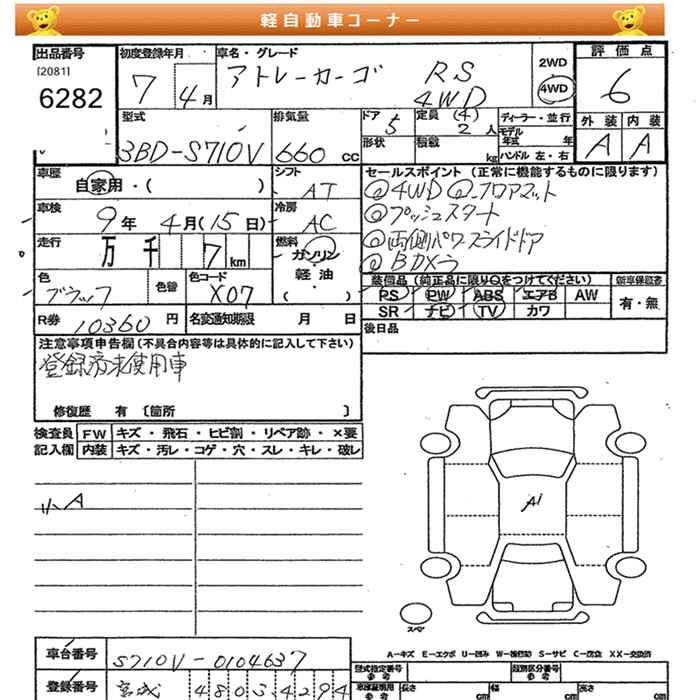 軽自動車コーナー
出品番号
[2081]
6282
初度登録年月
7 4月
車名・グレード
アトレーカーゴ RS
4WD
2WD
4WD
評価点
6
外装 内装
A A
型式
3BD-S710V
排気量
660 cc
ドア
5
定員 (4)
2 人
形状
積載
kg
ディーラー・並行
モデル年式 年
ハンドル 左・右
車歴
自家用・( )
シフト
AT
車検
9年 4月(15日)
冷房
AC
走行
万 千 7 km
燃料
ガソリン
軽油
( )
色
ブラック
色替
色コード
X07
R券 10360 円
名変通知期限 月 日
セールスポイント (正常に機能するものに限ります)
◎4WD ◎フロアマット
◎プッシュスタート
◎両側パワースライドドア
◎BDカメラ
装備品 (純正品に限り○をつけてください)
PS PW ABS エアB AW
SR ナビ TV カワ
新車保証書
有・無
後日品
注意事項申告欄(不具合内容等は具体的に記入して下さい)
登録済未使用車
修復歴 有 〔箇所 〕
検査員記入欄
FW キズ・飛石・ヒビ割・リペア跡・×要
内装 キズ・汚レ・コゲ・穴・スレ・キレ・破レ
小A
A1
スペア
A-キズ E-エクボ U-凹み W-補修跡 S-サビ C-腐食 XX-交換済
車台番号 S710V-0104637
型式指定番号 参考
類別区分番号 参考
登録番号 宮城 480 あ 4294
長さ cm 幅 cm 高さ cm